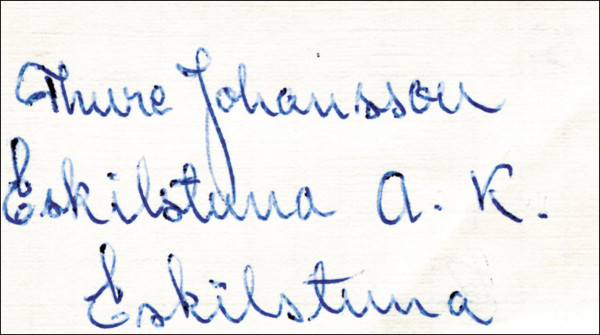 Thure Johansson
Eskilstuna A. K.
Eskilstuna